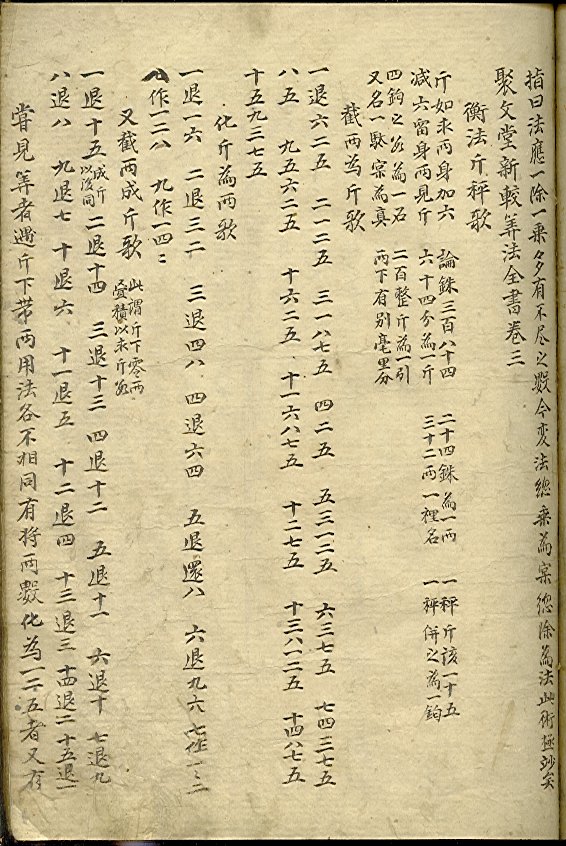 指曰法應一除一乗多有不尽之數今変法總乗為宲總除為法此術極妙矣
聚文堂新較筭法全書卷三
衡法斤秤歌
斤如求两身加六 論銖三百八十四 二十四銖為一两 一秤斤该一十五
减六留身两見斤 六十四分為一斤 三十二两一裡名 一秤併之為一鈞
四鈞之名為一石 二百整斤為一引
又名一馱宲為真 两下有别毫里分
截两為斤歌
一退六二五 二一二五 三一八七五 四二五 五三一二五 六三七五 七四三七五
八五 九五六二五 十六二五 十一六八七五 十二七五 十三八一二五 十四八七五
十五九三七五
化斤為两歌
一退一六 二退三二 三退四八 四退六四 五退還八 六退九六 七作一一二
八作一二八 九作一四二
又截两成斤歌 此謂斤下零两 叠積以求斤数
一退十五 成斤以後同 二退十四 三退十三 四退十二 五退十一 六退十 七退九
八退八 九退七 十退六 十一退五 十二退四 十三退三 十四退二 十五退一
嘗見筭者遇斤下带两用法各不相同有将两數化為一二五者又有